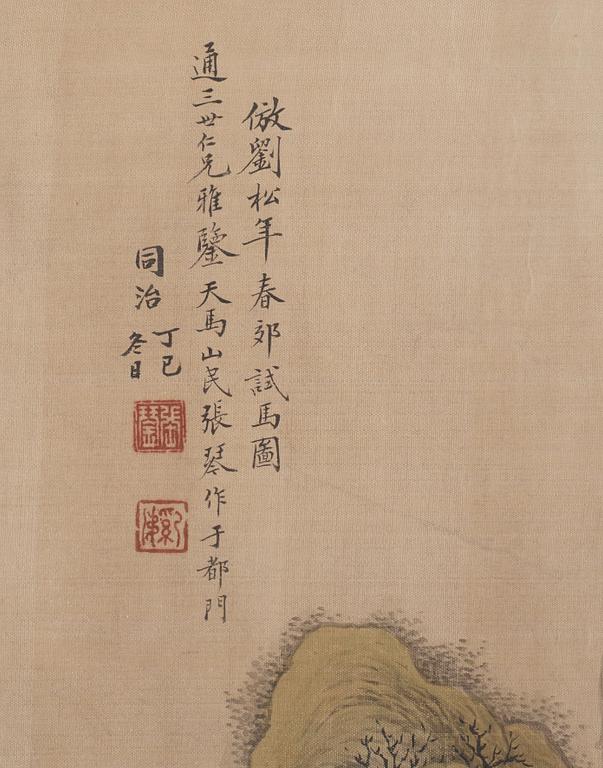 倣劉松年春郊試馬圖
通三世仁兄雅鑒天馬山民張琴作于都門
同治
丁巳
冬日
張琴